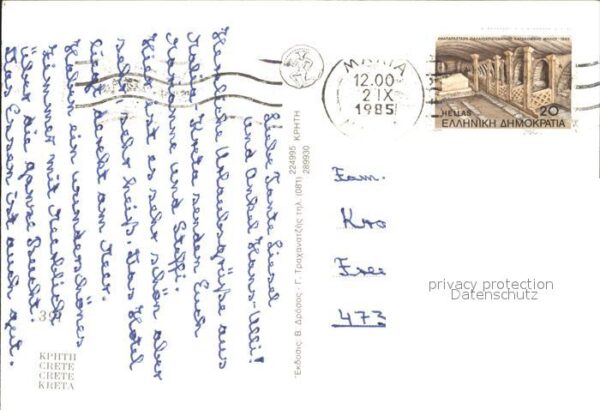 Liebe Tante Liesel
und Onkel Hans-Ulli!
Herzliche Urlaubsgrüße aus
Malia/Kreta senden Euch
Marianne und Steffi.
Hier ist es sehr schön aber
sehr, sehr heiß. Das Hotel
liegt direkt am Meer.
Haben ein wunderschönes
Zimmer mit Meerblick
über die ganze Bucht.
Das Essen ist auch gut.
39
ΚΡΗΤΗ
CRETE
CRETE
KRETA
Ἐκδοσις: Β. Δρόσος - Γ. Τραχανατζής τηλ. (081) 224995 ΚΡΗΤΗ
289930
MALIA
12.00
2 IX
1985
HELLAS
20
ΕΛΛΗΝΙΚΗ ΔΗΜΟΚΡΑΤΙΑ
Fam.
473
privacy protection
Datenschutz